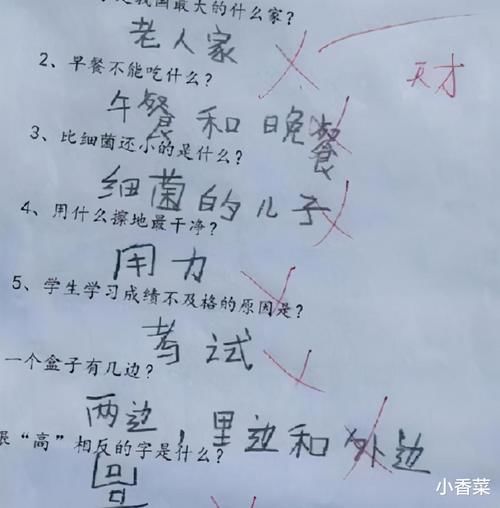 是我国最大的什么家?
老人家
天才
2、早餐不能吃什么?
午餐和晚餐
3、比细菌还小的是什么?
细菌的儿子
4、用什么擦地最干净?
用力
5、学生学习成绩不及格的原因是?
考试
一个盒子有几边?
两边,里边和外边
跟“高”相反的字是什么?
小香菜